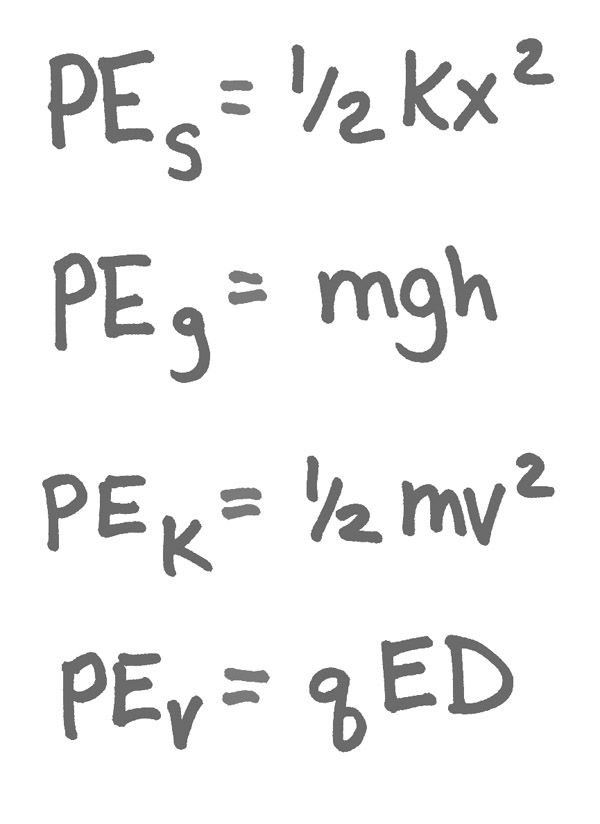 PEs = 1/2 Kx²
PEg = mgh
PEK = 1/2 mv²
PEv = qED